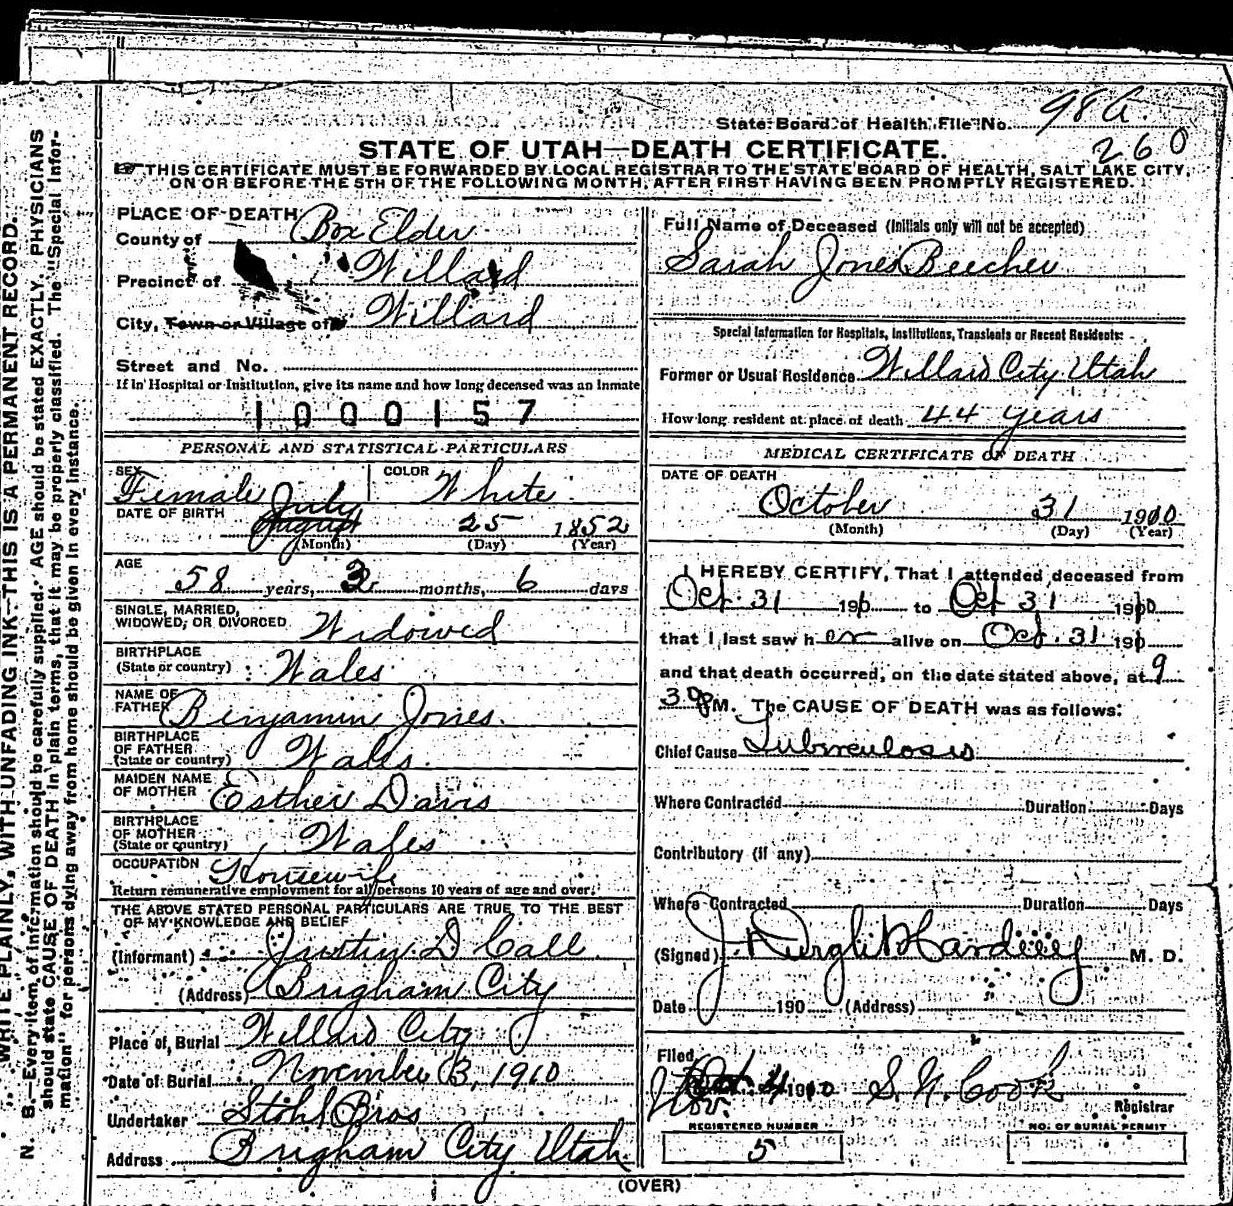 State Board of Health File No. 98 A.
260
STATE OF UTAH—DEATH CERTIFICATE.
THIS CERTIFICATE MUST BE FORWARDED BY LOCAL REGISTRAR TO THE STATE BOARD OF HEALTH, SALT LAKE CITY,
ON OR BEFORE THE 5TH OF THE FOLLOWING MONTH, AFTER FIRST HAVING BEEN PROMPTLY REGISTERED.
WRITE PLAINLY, WITH UNFADING INK—THIS IS A PERMANENT RECORD.
N. B.—Every item of information should be carefully supplied. AGE should be stated EXACTLY. PHYSICIANS
should state CAUSE OF DEATH in plain terms, that it may be properly classified. The "Special Infor-
mation" for persons dying away from home should be given in every instance.
PLACE OF DEATH
County of Box Elder
Precinct of Willard
City, Town or Village of Willard
Street and No.
If in Hospital or Institution, give its name and how long deceased was an Inmate
1000157
PERSONAL AND STATISTICAL PARTICULARS
SEX Female
COLOR White
DATE OF BIRTH August July 25 1852
(Month) (Day) (Year)
AGE
58 years, 3 months, 6 days
SINGLE, MARRIED,
WIDOWED, OR DIVORCED Widowed
BIRTHPLACE
(State or country) Wales
NAME OF
FATHER Benjamin Jones.
BIRTHPLACE
OF FATHER
(State or country) Wales.
MAIDEN NAME
OF MOTHER Esther Davis
BIRTHPLACE
OF MOTHER
(State or country) Wales
OCCUPATION Housewife
Return remunerative employment for all persons 10 years of age and over.
THE ABOVE STATED PERSONAL PARTICULARS ARE TRUE TO THE BEST
OF MY KNOWLEDGE AND BELIEF
(Informant) Justin D Call
(Address) Brigham City
Place of Burial Willard City
Date of Burial November 3, 1910
Undertaker Stohl Bros
Address Brigham City Utah.
Full Name of Deceased (Initials only will not be accepted)
Sarah Jones Beecher
Special Information for Hospitals, Institutions, Transients or Recent Residents:
Former or Usual Residence Willard City Utah
How long resident at place of death 44 years
MEDICAL CERTIFICATE OF DEATH
DATE OF DEATH
October 31 1910
(Month) (Day) (Year)
I HEREBY CERTIFY, That I attended deceased from
Oct. 31 191 to Oct 31 1910
that I last saw her alive on Oct. 31 191
and that death occurred, on the date stated above, at 9
30 P M. The CAUSE OF DEATH was as follows:
Chief Cause Tuberculosis
Where Contracted Duration Days
Contributory (if any)
Where Contracted Duration Days
(Signed) M. D.
Date 190 (Address)
Filed
Nov. 4 1910 S. N. Cook
Registrar
REGISTERED NUMBER
5
NO. OF BURIAL PERMIT
(OVER)